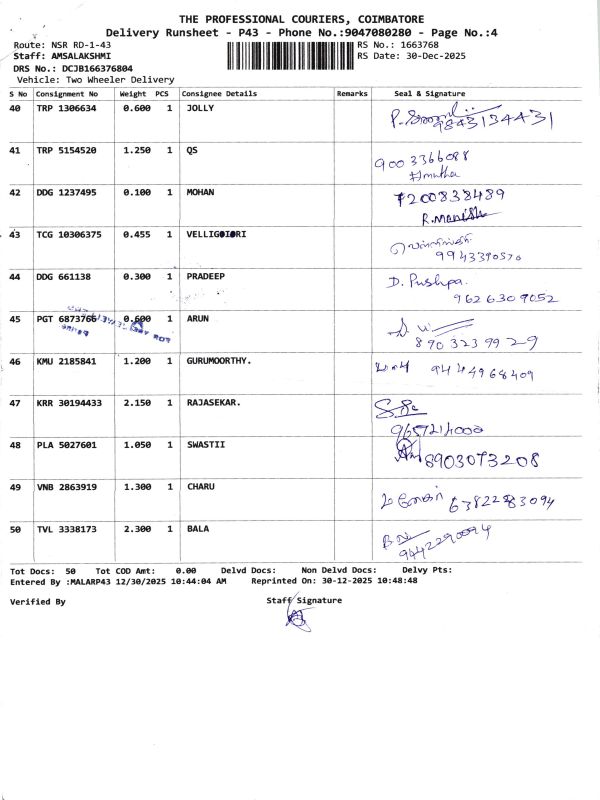 THE PROFESSIONAL COURIERS, COIMBATORE
Delivery Runsheet - P43 - Phone No.:9047080280 - Page No.:4
Route: NSR RD-1-43 RS No.: 1663768
Staff: AMSALAKSHMI RS Date: 30-Dec-2025
DRS No.: DCJB166376804
Vehicle: Two Wheeler Delivery
S No Consignment No Weight PCS Consignee Details Remarks Seal & Signature
40 TRP 1306634 0.600 1 JOLLY
9843134431
41 TRP 5154520 1.250 1 QS 9003366088
42 DDG 1237495 0.100 1 MOHAN 7200838489
R.Manish
43 TCG 10306375 0.455 1 VELLIGIRI
9943390570
44 DDG 661138 0.300 1 PRADEEP D. Pushpa.
9626309052
45 PGT 6873766 0.600 1 ARUN
8903239929
46 KMU 2185841 1.200 1 GURUMOORTHY. 9444968409
47 KRR 30194433 2.150 1 RAJASEKAR.
9657214000
48 PLA 5027601 1.050 1 SWASTII 8903073208
49 VNB 2863919 1.300 1 CHARU 6382283094
50 TVL 3338173 2.300 1 BALA
9442290094
Tot Docs: 50 Tot COD Amt: 0.00 Delvd Docs: Non Delvd Docs: Delvy Pts:
Entered By :MALARP43 12/30/2025 10:44:04 AM Reprinted On: 30-12-2025 10:48:48
Verified By Staff Signature